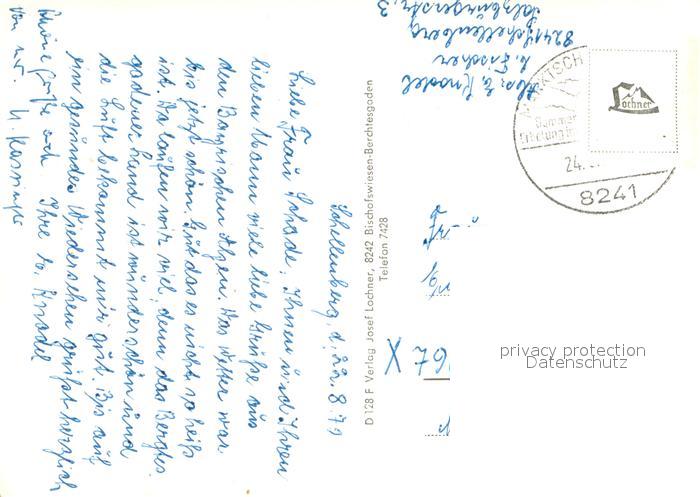 Schellenberg, d. 22. 8. 79
Liebe Frau Schade, Ihnen und Ihren
lieben Mann viele liebe Grüße aus
den Bayrischen Alpen. Das Wetter war
bis jetzt schön. Gut das es nicht so heiß
ist. Da laufen wir viel, denn das Berchtes-
gadener Land ist wunderschön und
die Luft bekommt mir gut. Bis auf
ein gesundes Wiedersehen grüßt herzlich
Ihre E. Knodel
von
D 128 F Verlag Josef Lochner, 8242 Bischofswiesen-Berchtesgaden
Telefon 7428
Abs. E. Knodel
8241 Schellenberg
Salzburgerstr. 3
Lochner
24.
8241
67 X
privacy protection
Datenschutz